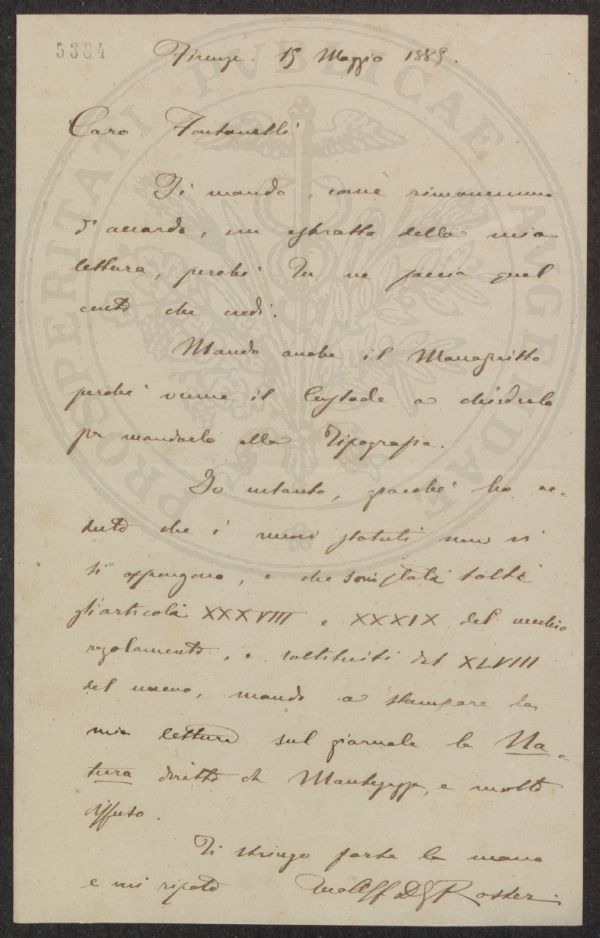 5384
Firenze. 15 Maggio 1885.
Caro Fontanelli
Ti mando, come rimanemmo
d'accordo, un estratto della mia
lettura, perché Tu ne faccia quel
conto che credi.
Mando anche il Manoscritto
perché venne il Custode a chiederlo
per mandarlo alla Tipografia.
Io intanto, giacché ho ve-
duto che i nuovi statuti non vi
si oppongono, e che sono stati tolti
gli articoli XXXVIII e XXXIX del vecchio
regolamento, e sostituiti dal XLVIII
del nuovo, mando a stampare la
mia lettura sul giornale la Na-
tura diretto da Mantegazza, e molto
diffuso.
Ti stringo forte la mano
e mi ripeto Roster
PROSPERITATI PUBLICAE AUGENDAE